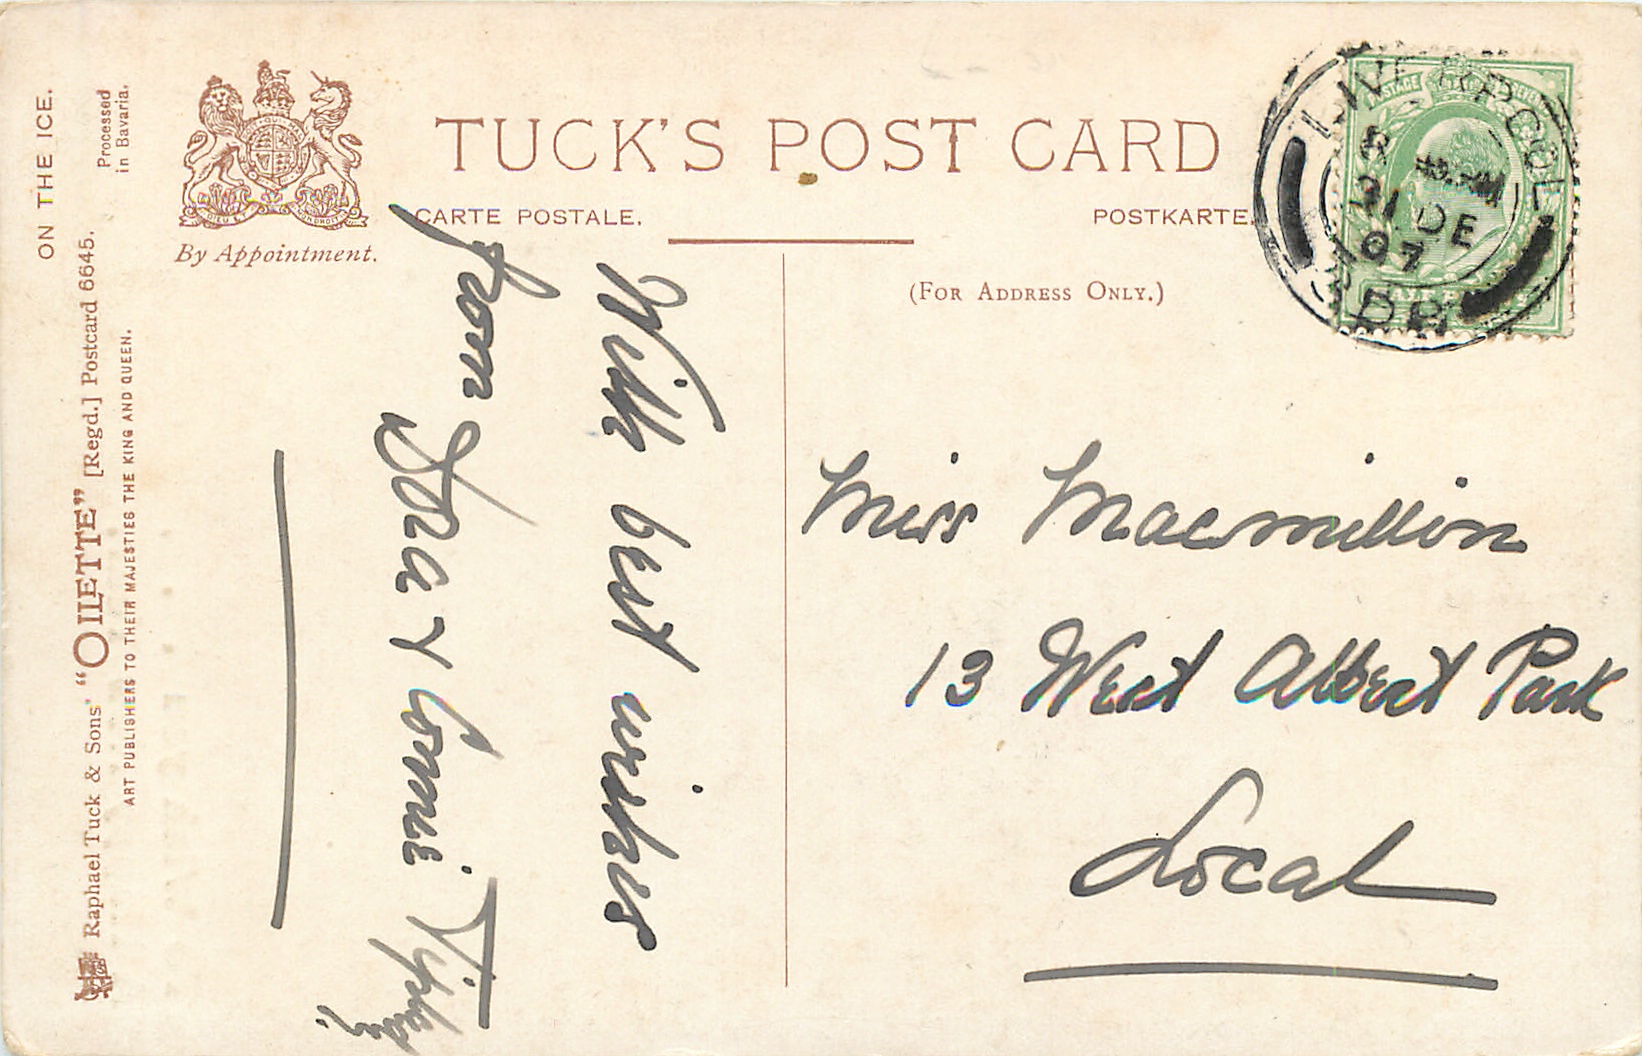 ON THE ICE.
Processed
in Bavaria.
Raphael Tuck & Sons' "OILETTE" [Regd.] Postcard 6645.
ART PUBLISHERS TO THEIR MAJESTIES THE KING AND QUEEN.
DIEU ET MON DROIT
By Appointment.
TUCK'S POST CARD
CARTE POSTALE.
POSTKARTE.
(FOR ADDRESS ONLY.)
LIVERPOOL
31 DE
07
POSTAGE
With best wishes
from Dora & Connie
Miss Macmillin
13 West Albert Park
Local